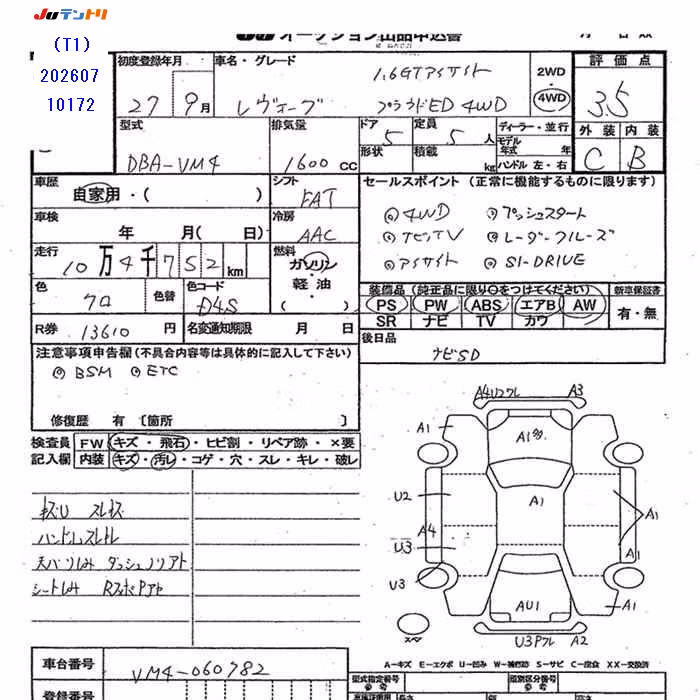 JUテントリ
JU オークション出品申込書
(T1)
202607
10172
初度登録年月 車名・グレード 評価点
27 9月 レヴォーグ 1.6GTアイサイト プラウドED 4WD 2WD・4WD 3.5
外装 内装
C B
型式 排気量 ドア 定員 ディーラー・並行
DBA-VM4 1600 CC 5 5 人 モデル年式 年
形状 積載 kg ハンドル 左・右
車歴 シフト セールスポイント (正常に機能するものに限ります)
自家用・( ) FAT
◎4WD ◎プッシュスタート
車検 冷房
年 月( 日) AAC
◎ナビTV ◎レーダークルーズ
走行 燃料
10万4千752km ガソリン・軽油・( )
◎アイサイト ◎SI-DRIVE
色 色替 色コード
クロ D4S
装備品 (純正品に限り○をつけてください) 新車保証書
PS PW ABS エアB AW 有・無
SR ナビ TV カワ
R券 13610 円 名変通知期限 月 日
後日品
ナビSD
注意事項申告欄 (不具合内容等は具体的に記入して下さい)
◎BSM ◎ETC
修復歴 有 〔箇所 〕
検査員 FW キズ・飛石・ヒビ割・リペア跡・×要
記入欄 内装 キズ・汚レ・コゲ・穴・スレ・キレ・破レ
キズU スレキズ
ハンドルスレ
天バリしみ
シートしみ
A4U2ワレ A3
A1
A1多
U2
A1
A4
A1
U3
A1
U3
AU1
A1
スペア
U3Pワレ A2
A-キズ E-エクボ U-凹み W-補修跡 S-サビ C-腐食 XX-交換済
車台番号 VM4-060782
型式指定番号 類別区分番号
登録番号
長さ